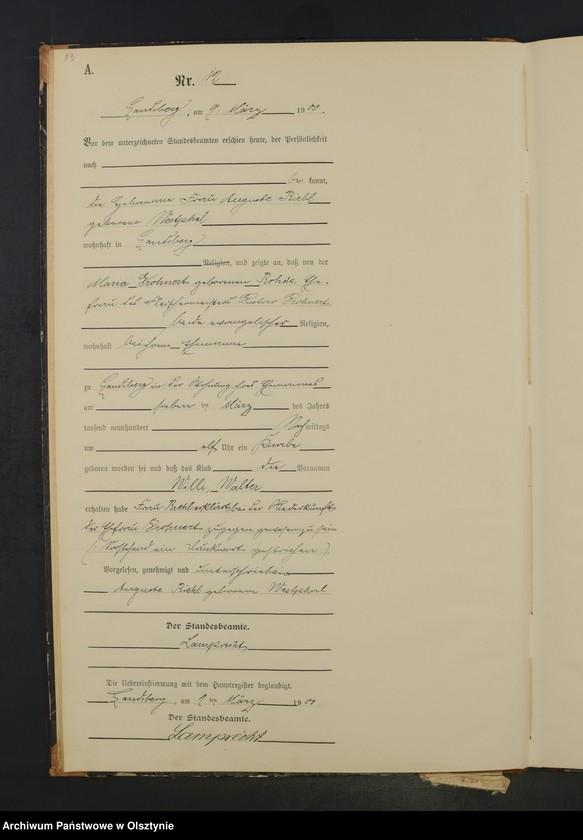 13
A.
Nr. 12
Landsberg, am 9. März 1900.
Vor dem unterzeichneten Standesbeamten erschien heute, der Persönlichkeit
nach
be kannt,
die Hebamme Frau Auguste Riehl
geborene Westphal
wohnhaft in Landsberg
Religion, und zeigte an, daß von der
Maria Grohnert geborenen Rohde, Ehe-
frau des Gustav Grohnert
beide evangelischer Religion,
wohnhaft bei ihrem Ehemanne
zu Landsberg in der Wohnung des Ehemannes
am sieben ten März des Jahres
tausend neunhundert Nachmittags
um elf Uhr ein Knabe
geboren worden sei und daß das Kind die Vornamen
Willi, Walter
erhalten habe Frau Riehl erklärt bei der Niederkunft
der Ehefrau Grohnert zugegen gewesen zu sein
(Vorstehend ein Druckwort gestrichen.)
Vorgelesen, genehmigt und unterschrieben
Auguste Riehl geborene Westphal
Der Standesbeamte.
Lamprecht
Die Uebereinstimmung mit dem Hauptregister beglaubigt.
Landsberg, am 9 ten März 1900
Der Standesbeamte.
Lamprecht
Archiwum Państwowe w Olsztynie